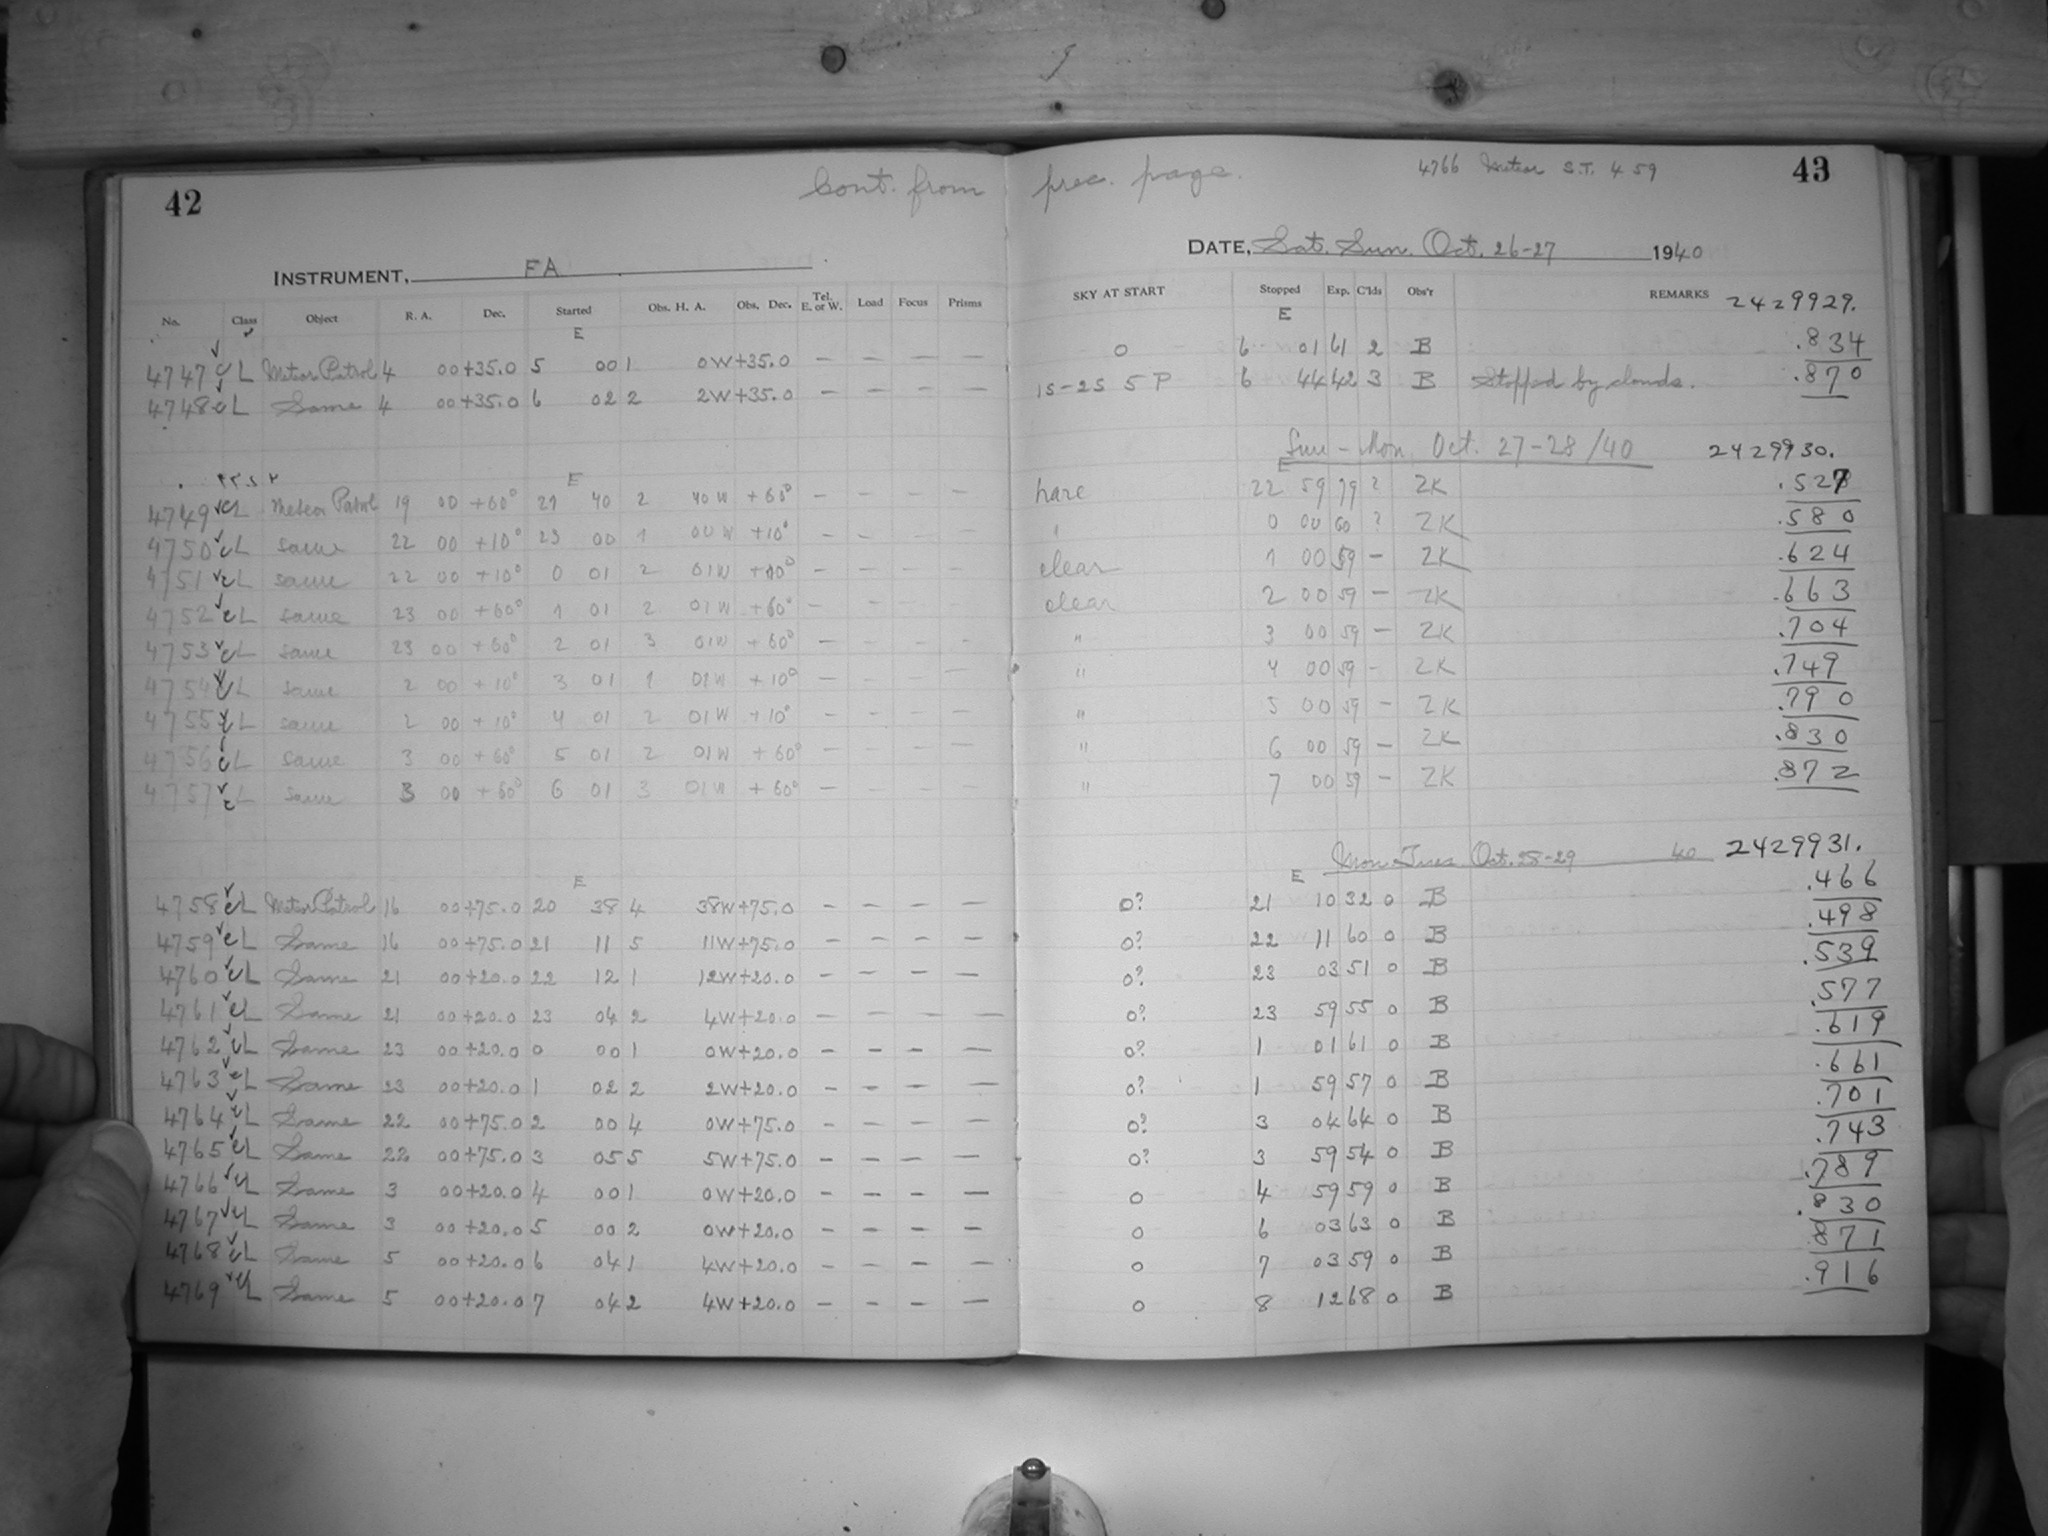 42 Cont. from prec. page. 4766 Meteor S.T. 4 59 43
INSTRUMENT, FA DATE, Sat. Sun. Oct. 26-27 1940
No. Class Object R. A. Dec. Started Obs. H. A. Obs. Dec. Tel. E. or W. Load Focus Prisms SKY AT START Stopped Exp. C'lds Obs'r REMARKS 2429929.
E E
4747 cL Meteor Patrol 4 00 +35.0 5 00 1 0W +35.0 — — — — 0 6 01 61 2 B .834
4748 cL Same 4 00 +35.0 6 02 2 2W +35.0 — — — — 15-25 5 P 6 44 42 3 B Stopped by clouds. .870
Sun - Mon Oct. 27-28/40 2429930.
E E
4749 cL Meteor Patrol 19 00 +60° 21 40 2 40W +60° — — — — haze 22 59 79 ? ZK .527
4750 cL same 22 00 +10° 23 00 1 00W +10° — — — — " 0 00 60 ? ZK .580
4751 cL same 22 00 +10° 0 01 2 01W +10° — — — — clear 1 00 59 — ZK .624
4752 cL same 23 00 +60° 1 01 2 01W +60° — — — — clear 2 00 59 — ZK .663
4753 cL same 23 00 +60° 2 01 3 01W +60° — — — — " 3 00 59 — ZK .704
4754 cL same 2 00 +10° 3 01 1 01W +10° — — — — " 4 00 59 - ZK .749
4755 cL same 2 00 +10° 4 01 2 01W +10° — — — — " 5 00 59 — ZK .790
4756 cL same 3 00 +60° 5 01 2 01W +60° — — — — " 6 00 59 — ZK .830
4757 cL same 3 00 +60° 6 01 3 01W +60° — — — — " 7 00 59 — ZK .872
Mon Tues Oct. 28-29 40 2429931.
E E
4758 cL Meteor Patrol 16 00 +75.0 20 38 4 38W +75.0 — — — — 0? 21 10 32 0 B .466
4759 cL Same 16 00 +75.0 21 11 5 11W +75.0 — — — — 0? 22 11 60 0 B .498
4760 cL Same 21 00 +20.0 22 12 1 12W +20.0 — — — — 0? 23 03 51 0 B .539
4761 cL Same 21 00 +20.0 23 04 2 4W +20.0 — — — — 0? 23 59 55 0 B .577
4762 cL Same 23 00 +20.0 0 00 1 0W +20.0 — — — — 0? 1 01 61 0 B .619
4763 cL Same 23 00 +20.0 1 02 2 2W +20.0 — — — — 0? 1 59 57 0 B .661
4764 cL Same 22 00 +75.0 2 00 4 0W +75.0 — — — — 0? 3 04 64 0 B .701
4765 cL Same 22 00 +75.0 3 05 5 5W +75.0 — — — — 0? 3 59 54 0 B .743
4766 cL Same 3 00 +20.0 4 00 1 0W +20.0 — — — — 0 4 59 59 0 B .789
4767 cL Same 3 00 +20.0 5 00 2 0W +20.0 — — — — 0 6 03 63 0 B .830
4768 cL Same 5 00 +20.0 6 04 1 4W +20.0 — — — — 0 7 03 59 0 B .871
4769 cL Same 5 00 +20.0 7 04 2 4W +20.0 — — — — 0 8 12 68 0 B .916